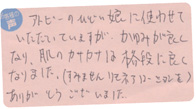 声
アトピーのひどい娘に使わせて
いただいていますが、かゆみが良く
なり、肌のカサカサは格段に良く
なりました。
ありがとうございました。